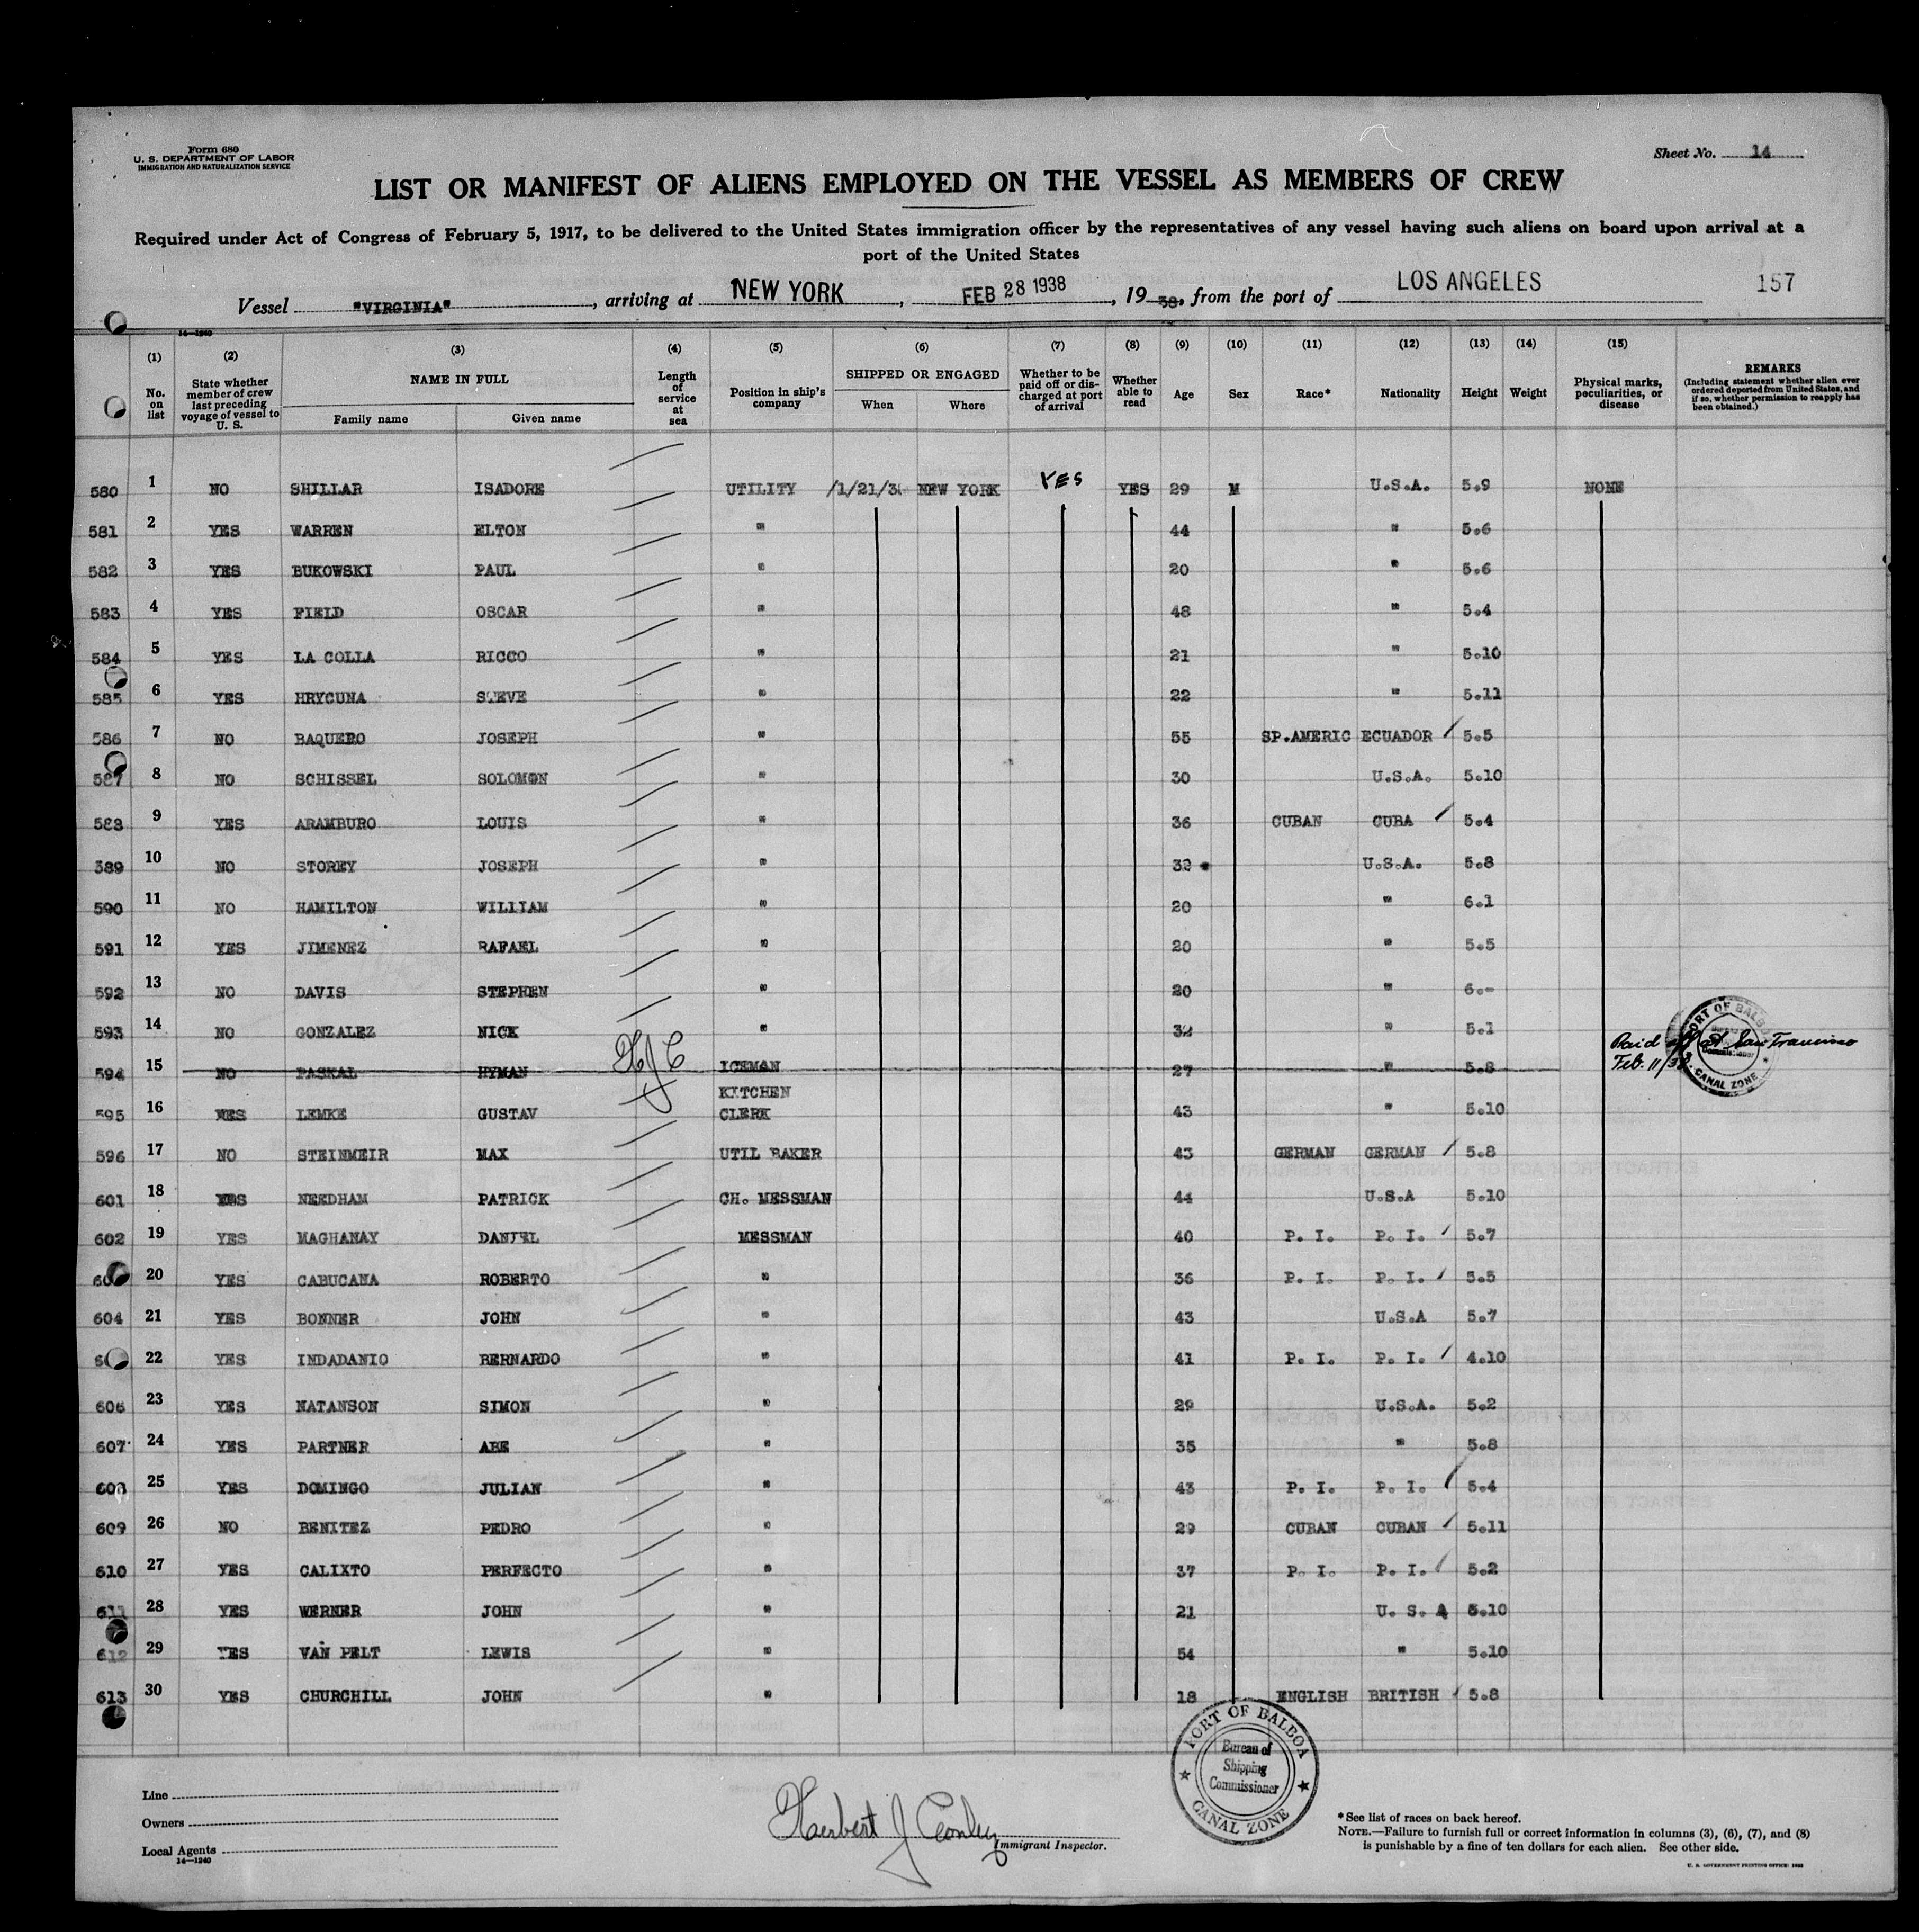 Form 680
U. S. DEPARTMENT OF LABOR
IMMIGRATION AND NATURALIZATION SERVICE
Sheet No. 14
LIST OR MANIFEST OF ALIENS EMPLOYED ON THE VESSEL AS MEMBERS OF CREW
Required under Act of Congress of February 5, 1917, to be delivered to the United States immigration officer by the representatives of any vessel having such aliens on board upon arrival at a
port of the United States
Vessel "VIRGINIA", arriving at NEW YORK, FEB 28 1938, 19 38, from the port of LOS ANGELES 157
14—1240
(1) No. on list
(2) State whether member of crew last preceding voyage of vessel to U. S.
(3) NAME IN FULL Family name Given name
(4) Length of service at sea
(5) Position in ship's company
(6) SHIPPED OR ENGAGED When Where
(7) Whether to be paid off or discharged at port of arrival
(8) Whether able to read
(9) Age
(10) Sex
(11) Race*
(12) Nationality
(13) Height
(14) Weight
(15) Physical marks, peculiarities, or disease
REMARKS (Including statement whether alien ever ordered deported from United States, and if so, whether permission to reapply has been obtained.)
580 1 NO SHILLAR ISADORE UTILITY /1/21/3 NEW YORK YES YES 29 M U.S.A. 5.9 NONE
581 2 YES WARREN ELTON " 44 " 5.6
582 3 YES BUKOWSKI PAUL " 20 " 5.6
583 4 YES FIELD OSCAR " 48 " 5.4
584 5 YES LA COLLA RICCO " 21 " 5.10
585 6 YES HRYCUNA STEVE " 22 " 5.11
586 7 NO BAQUERO JOSEPH " 55 SP.AMERIC ECUADOR 5.5
587 8 NO SCHISSEL SOLOMON " 30 U.S.A. 5.10
588 9 YES ARAMBURO LOUIS " 36 CUBAN CUBA 5.4
589 10 NO STOREY JOSEPH " 32 U.S.A. 5.8
590 11 NO HAMILTON WILLIAM " 20 " 6.1
591 12 YES JIMENEZ RAFAEL " 20 " 5.5
592 13 NO DAVIS STEPHEN " 20 " 6.-
593 14 NO GONZALEZ NICK " 32 " 5.1
594 15 NO PASKAL HYMAN HJC ICEMAN 27 " 5.8 Paid off at San Francisco Feb. 11/38
PORT OF BALBOA CANAL ZONE
595 16 YES LEMKE GUSTAV KITCHEN CLERK 43 " 5.10
596 17 NO STEINMEIR MAX UTIL BAKER 43 GERMAN GERMAN 5.8
601 18 YES NEEDHAM PATRICK CH. MESSMAN 44 U.S.A 5.10
602 19 YES MAGHANAY DANIEL MESSMAN 40 P. I. P. I. 5.7
20 YES CABUCANA ROBERTO " 36 P. I. P. I. 5.5
604 21 YES BONNER JOHN " 43 U.S.A 5.7
22 YES INDADANIO BERNARDO " 41 P. I. P. I. 4.10
606 23 YES NATANSON SIMON " 29 U.S.A. 5.2
607 24 YES PARTNER ABE " 35 " 5.8
608 25 YES DOMINGO JULIAN " 43 P. I. P. I. 5.4
609 26 NO BENITEZ PEDRO " 29 CUBAN CUBAN 5.11
610 27 YES CALIXTO PERFECTO " 37 P. I. P. I. 5.2
611 28 YES WERNER JOHN " 21 U. S. A 5.10
612 29 YES VAN PELT LEWIS " 54 " 5.10
613 30 YES CHURCHILL JOHN " 18 ENGLISH BRITISH 5.8
PORT OF BALBOA
Bureau of
Shipping
Commissioner
CANAL ZONE
Line
Owners
Local Agents
14—1240
Herbert J Conley
Immigrant Inspector.
*See list of races on back hereof.
NOTE.—Failure to furnish full or correct information in columns (3), (6), (7), and (8)
is punishable by a fine of ten dollars for each alien. See other side.
U. S. GOVERNMENT PRINTING OFFICE